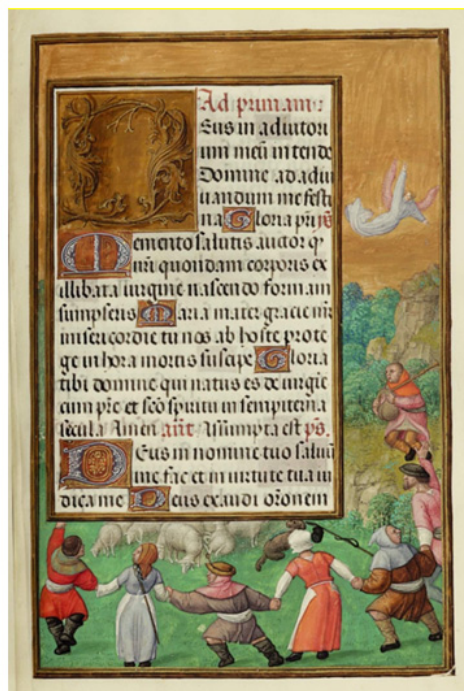 Ad primam:
Eus in adiutori
um meū intende
Domine ad adiu
uandum me festi
na Gloria pr̄i ẏs
Memento salutis auctor q̄
nr̄i quondam corporis ex
illibata uirgine nascendo formam
sumpseris Maria mater gracie mr̄
misericordie tu nos ab hoste prote
ge in hora mortis suscipe Gloria
tibi domine qui natus es de uirgīe
cum pr̄e et scō spiritu in sempiterna
secula Amen añt Assumpta est ps.
Deus in nomine tuo saluū
me fac et in uirtute tua iu
dica me Deus exaudi orōnem